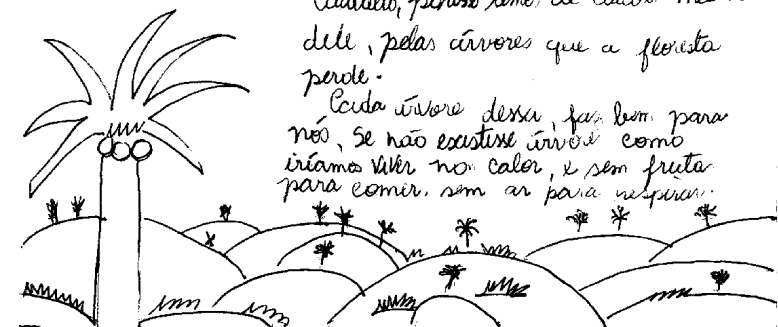 dele, pelas árvores que a floresta
perde.
Cada árvore dessa, faz bem para
nós, se não existisse árvore como
iríamos viver no calor, e sem fruta
para comer, sem ar para respirar.